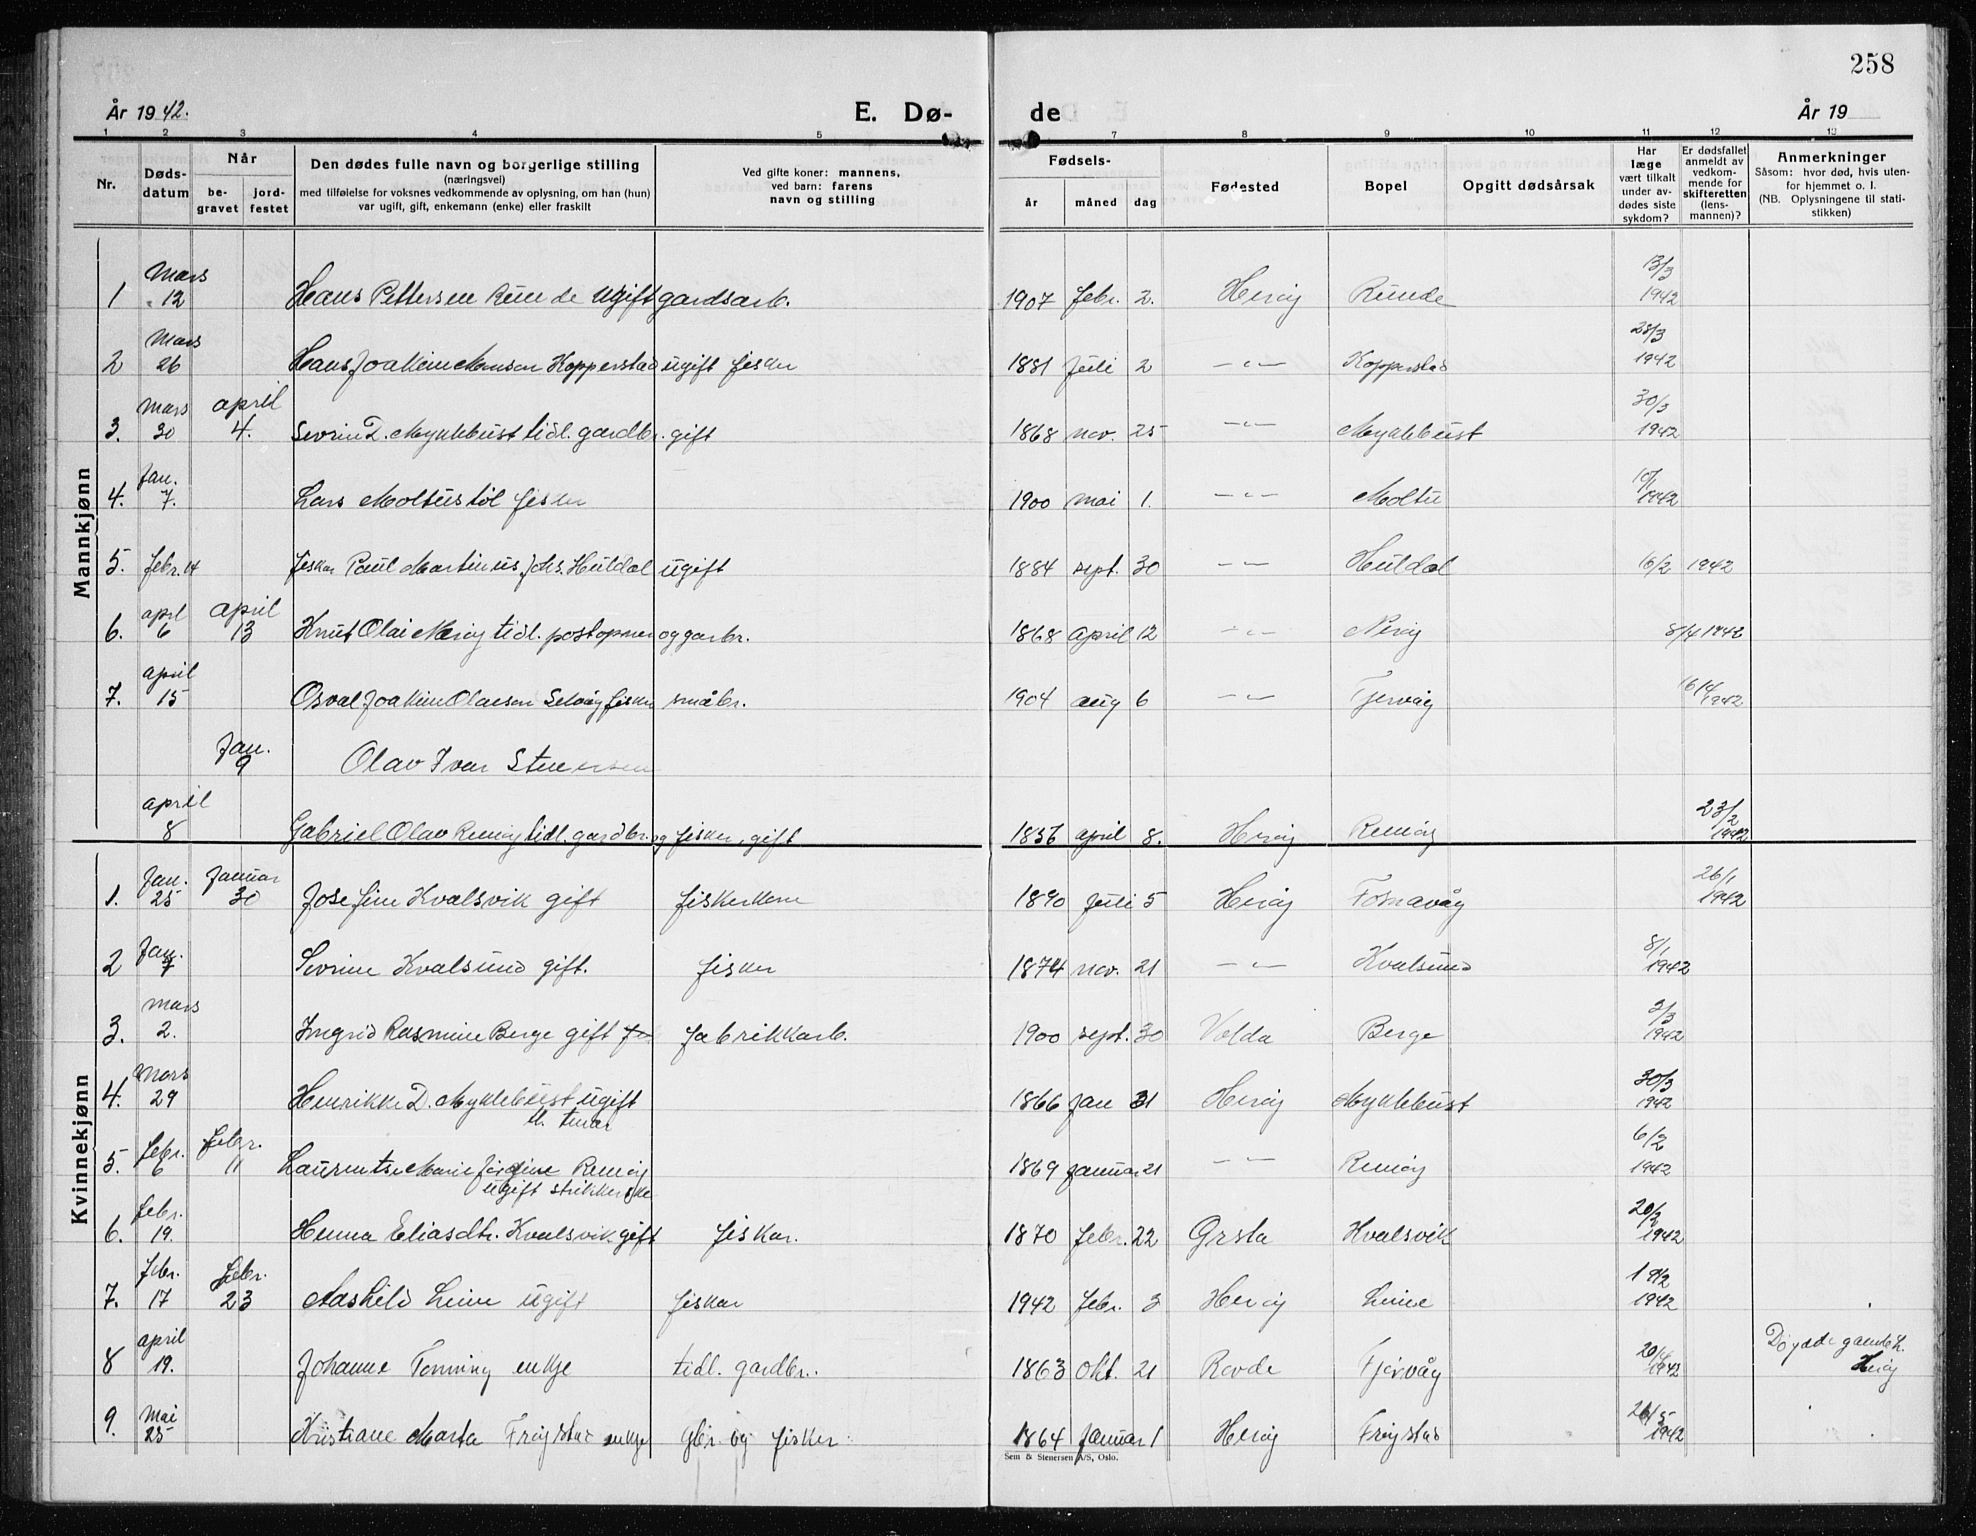 258
År 1942. E. Dø- de År 19
1 2 3 4 5 7 8 9 10 11 12 13
Nr. Døds-datum Når be-gravet jord-festet Den dødes fulle navn og borgerlige stilling (næringsvei) med tilføielse for voksnes vedkommende av oplysning, om han (hun) var ugift, gift, enkemann (enke) eller fraskilt Ved gifte koner: mannens, ved barn: farens navn og stilling Fødsels- år måned dag Fødested Bopel Opgitt dødsårsak Har læge vært tilkalt under av-dødes siste sykdom? Er dødsfallet anmeldt av vedkom-mende for skifteretten (lens-mannen)? Anmerkninger Såsom: hvor død, hvis uten-for hjemmet o. l. (NB. Oplysningene til stati-stikken)
Mannkjønn
1 Mars 12 Hans Pettersen Runde ugift gardsarb. 1907 febr. 2. Herøy Runde 13/3 1942
2 Mars 26 Hans Joakim Monsen Kopperstad ugift fisker 1881 Juli 2 -"- Kopperstad 28/3 1942
3. Mars 30 april 4. Sevrin D. Myklebust tidl. gardbr. gift 1868 nov. 25 -"- Myklebust 30/3 1942
4. Jan. 7. Lars Moltustøl fisker 1900 mai 1. -"- Moltu 1942
5. febr. 14 fisker Paul Martinus Johs. Huldal ugift 1884 sept. 30 -"- Huldal 16/2 1942
6. april 6 april 13 Knut Olai Nerøy tidl. postopner og garbr. 1868 april 12 -"- Nerøy 8/4 1942
7. april 15 Osval Joakim Olausen Selvåg fisker småbr. 1904 aug 6 -"- Tjervåg 16/4 1942
Jan. 9 Olav Ivar
april 8 Gabriel Olav Remøy tidl. gardbr. og fisker, gift 1856 april 8. Herøy Remøy 23/2 1942
Kvinnekjønn
1. Jan. 25 Januar 30 Josefine Kvalsvik gift fiskerkone 1890 Juli 5 Herøy Fosnavåg 26/1 1942
2 Jan. 7 Sevrine Kvalsund gift. fisker 1874 nov. 21 -"- Kvalsund 8/1 1942
3. mars 2. Ingrid Rasmine Berge gift fabrikkarb. 1900 sept. 30 Volda Berge 3/3 1942
4. Mars 29 Henrikke D. Myklebust ugift 1866 jan 31 Herøy Myklebust 30/3 1942
5. febr. 6 febr. 11 Laurentse Marie Remøy 1869 januar 21 -"- Remøy 6/2 1942
ugift strikkerske
6. febr. 19. Henna Eliasdtr. Kvalsvik gift fisker. 1870 febr. 22 Ørsta Kvalsvik 20/2 1942
7. febr. 17 febr. 23 Aashild Leine ugift fisker 1942 febr. 3 Herøy Leine 19/2 1942
8 april 19. Johanne Tonning enkje tidl. gardbr. 1863 okt. 21 Rovde Tjørvåg 20/4 1942 Herøy
9. Mai 25 Kristiane Marta Frøystad enkje gbr. og fisker 1864 Januar 1 Herøy Frøystad 26/5 1942
Sem & Stenersen A/S, Oslo.